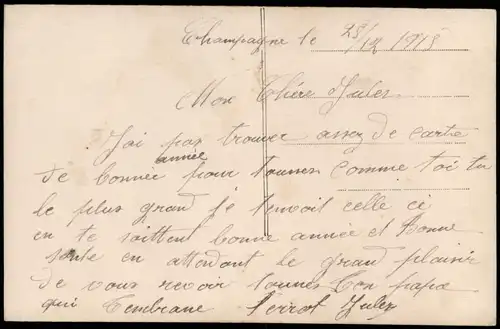 Champagne le 25/12 1915
Mon Chére Jules
J'ai pas trouver assez de carte
de bonnée année pour tousser comme toi tu
le plus grand je t'envoit celle ci
en te soittent bonne année et Bonne
sante en attendant le grand plaisir
de vous revoir tousser Ton papa
qui t'embrasse Perrot Jules